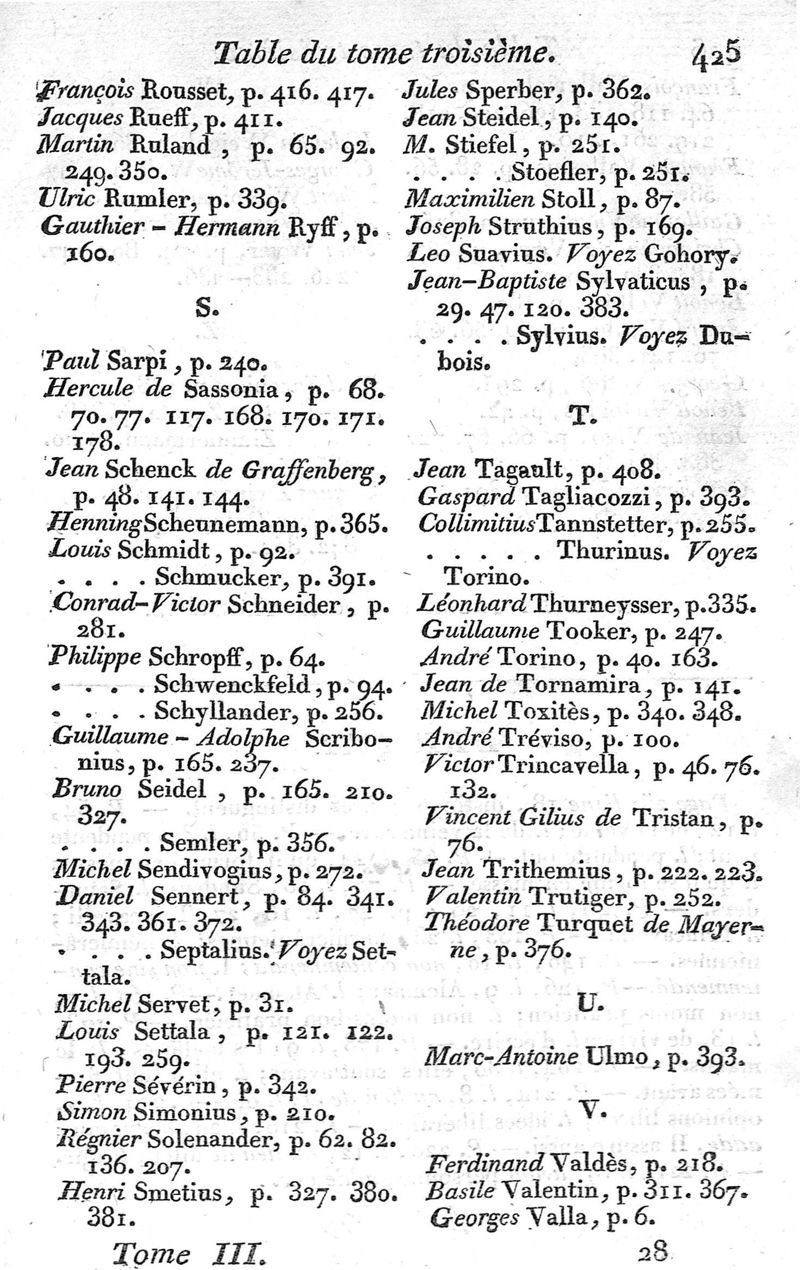 Table du tome troisième. 425
François Rousset, p. 416. 417.
Jacques Rueff, p. 411.
Martin Ruland, p. 65. 92.
249. 350.
Ulric Rumler, p. 339.
Gauthier-Hermann Ryff, p.
160.
S.
Paul Sarpi, p. 240.
Hercule de Sassonia, p. 68.
70. 77. 117. 168. 170. 171.
178.
Jean Schenck de Graffenberg,
p. 48. 141. 144.
Henning Scheunemann, p. 365.
Louis Schmidt, p. 92.
. . . . Schmucker, p. 391.
Conrad-Victor Schneider, p.
281.
Philippe Schropff, p. 64.
. . . . Schwenckfeld, p. 94.
. . . . Schyllander, p. 256.
Guillaume-Adolphe Scribo-
nius, p. 165. 237.
Bruno Seidel, p. 165. 210.
327.
. . . . Semler, p. 356.
Michel Sendivogius, p. 272.
Daniel Sennert, p. 84. 341.
343. 361. 372.
. . . . Septalius. Voyez Set-
tala.
Michel Servet, p. 31.
Louis Settala, p. 121. 122.
193. 259.
Pierre Sévérin, p. 342.
Simon Simonius, p. 210.
Régnier Solenander, p. 62. 82.
136. 207.
Henri Smetius, p. 327. 380.
381.
Jules Sperber, p. 362.
Jean Steidel, p. 140.
M. Stiefel, p. 251.
. . . . Stoefler, p. 251.
Maximilien Stoll, p. 87.
Joseph Struthius, p. 169.
Leo Suavius. Voyez Gohory.
Jean-Baptiste Sylvaticus, p.
29. 47. 120. 383.
. . . . Sylvius. Voyez Du-
bois.
T.
Jean Tagault, p. 408.
Gaspard Tagliacozzi, p. 393.
Collimitius Tannstetter, p. 255.
. . . . . Thurinus. Voyez
Torino.
Léonhard Thurneysser, p. 335.
Guillaume Tooker, p. 247.
André Torino, p. 40. 163.
Jean de Tornamira, p. 141.
Michel Toxitès, p. 340. 348.
André Tréviso, p. 100.
Victor Trincavella, p. 46. 76.
132.
Vincent Gilius de Tristan, p.
76.
Jean Trithemius, p. 222. 223.
Valentin Trutiger, p. 252.
Théodore Turquet de Mayer-
ne, p. 376.
U.
Marc-Antoine Ulmo, p. 393.
V.
Ferdinand Valdès, p. 218.
Basile Valentin, p. 311. 367.
Georges Valla, p. 6.
Tome III. 28